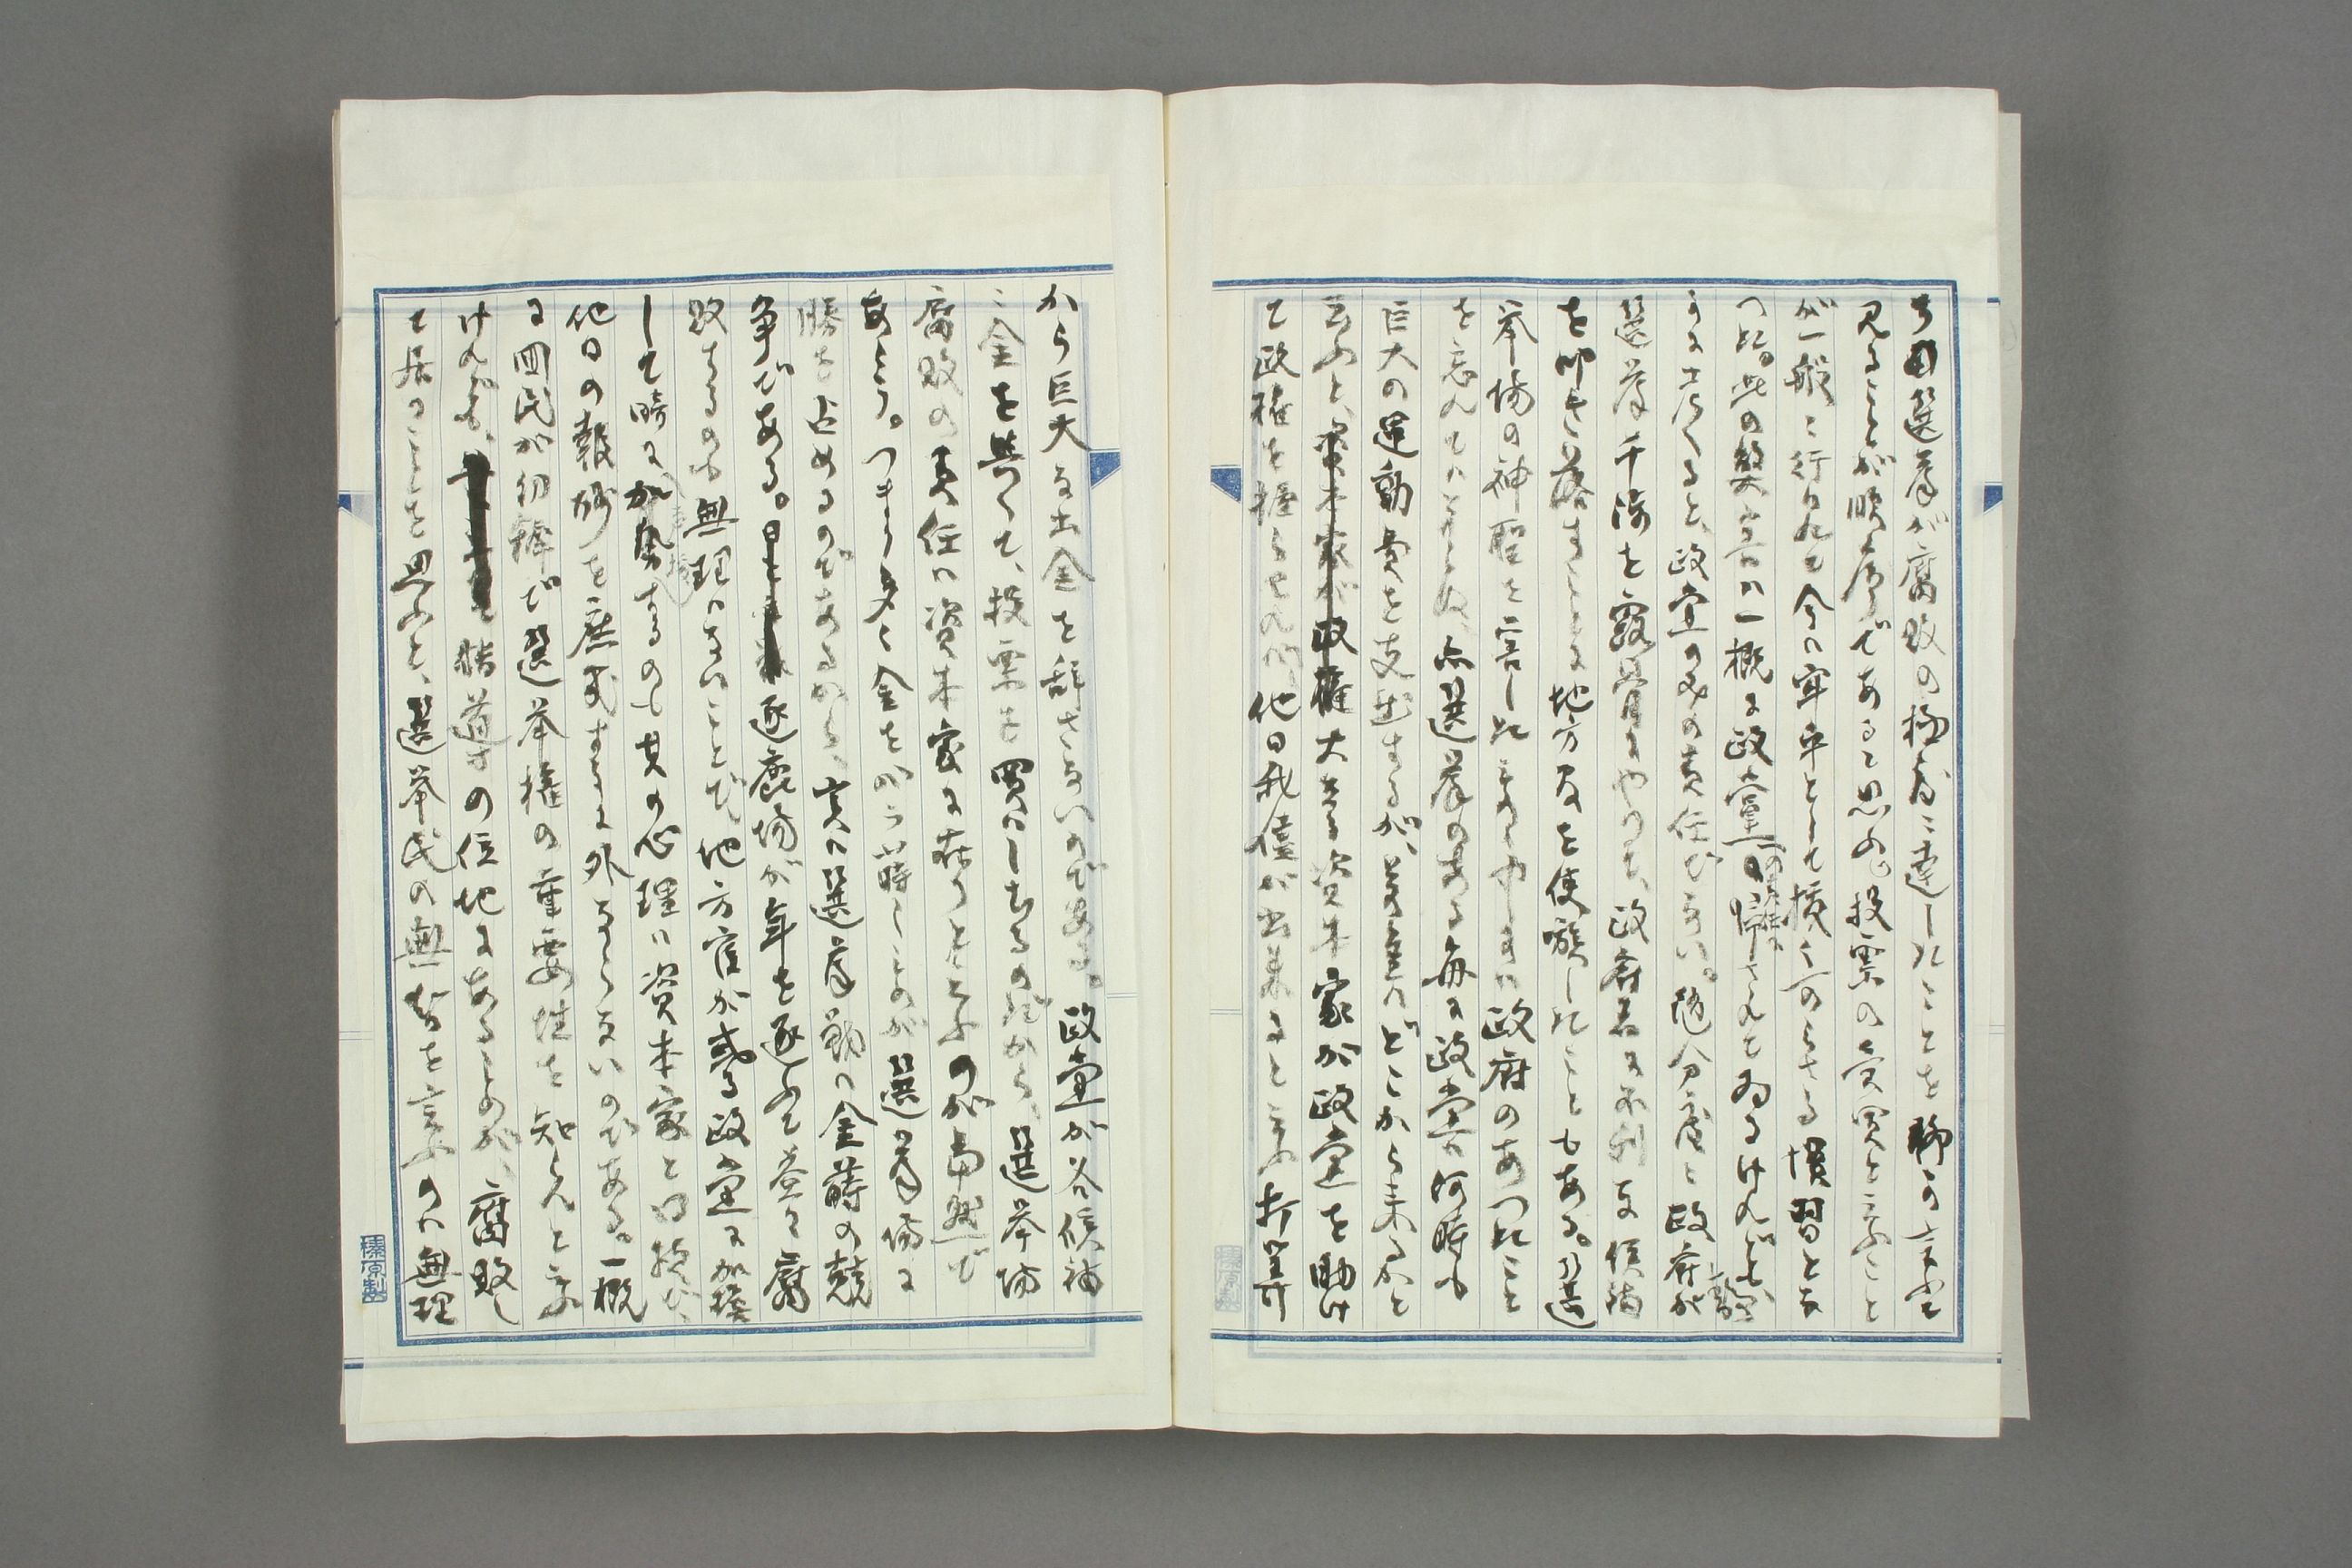 選挙が腐敗の極度に達したことを
見ることが順序であると思ふ。投票の売買と云ふこと
が一般に行はれて今は牢乎として抜くべからざる慣習とな
つた。此の弊害は一概に政党の
うに考へると、政党のみの責任でない。随分度々政府が
選挙干渉を露骨にやつて、政府者に不利な候補
を叩き落すことに地方官を使嗾したこともある。選
挙場の神聖を害した 政府のあつたこと
を忘れてはならぬ。点選挙のある毎に政党は何時も
巨大の運動費を支出するが、其金はどこから来るかと
云ふと、大なる資本家が政党を助け
て政権を握らせれば他日我儘が出来ると云ふ打算
から巨大な出金を辞さないのである。政党が各候補
に金を与へて、投票を買はしむるのだから、選挙場
腐敗の責任は資本家に在りと云ふのが当然で
あらう。つまり多く金をバラ蒔くものが選挙場に
勝を占めるのであるから、実は選挙戦は金蒔の競
争である。逐鹿場が年を逐ふて益々腐
敗するのも無理はないことだ。地方官が或る政党に加擔
して時に するのも其の心理は資本家と同様で、
他日の報酬を庶幾するに外ならないのである。一概
に国民が幼稚で選挙権の重要性を知らんと云ふ
けれども、 の位地にあるものが、腐敗し
て居ることを思ふと、選挙民の無智を言ふのは無理
榛原製